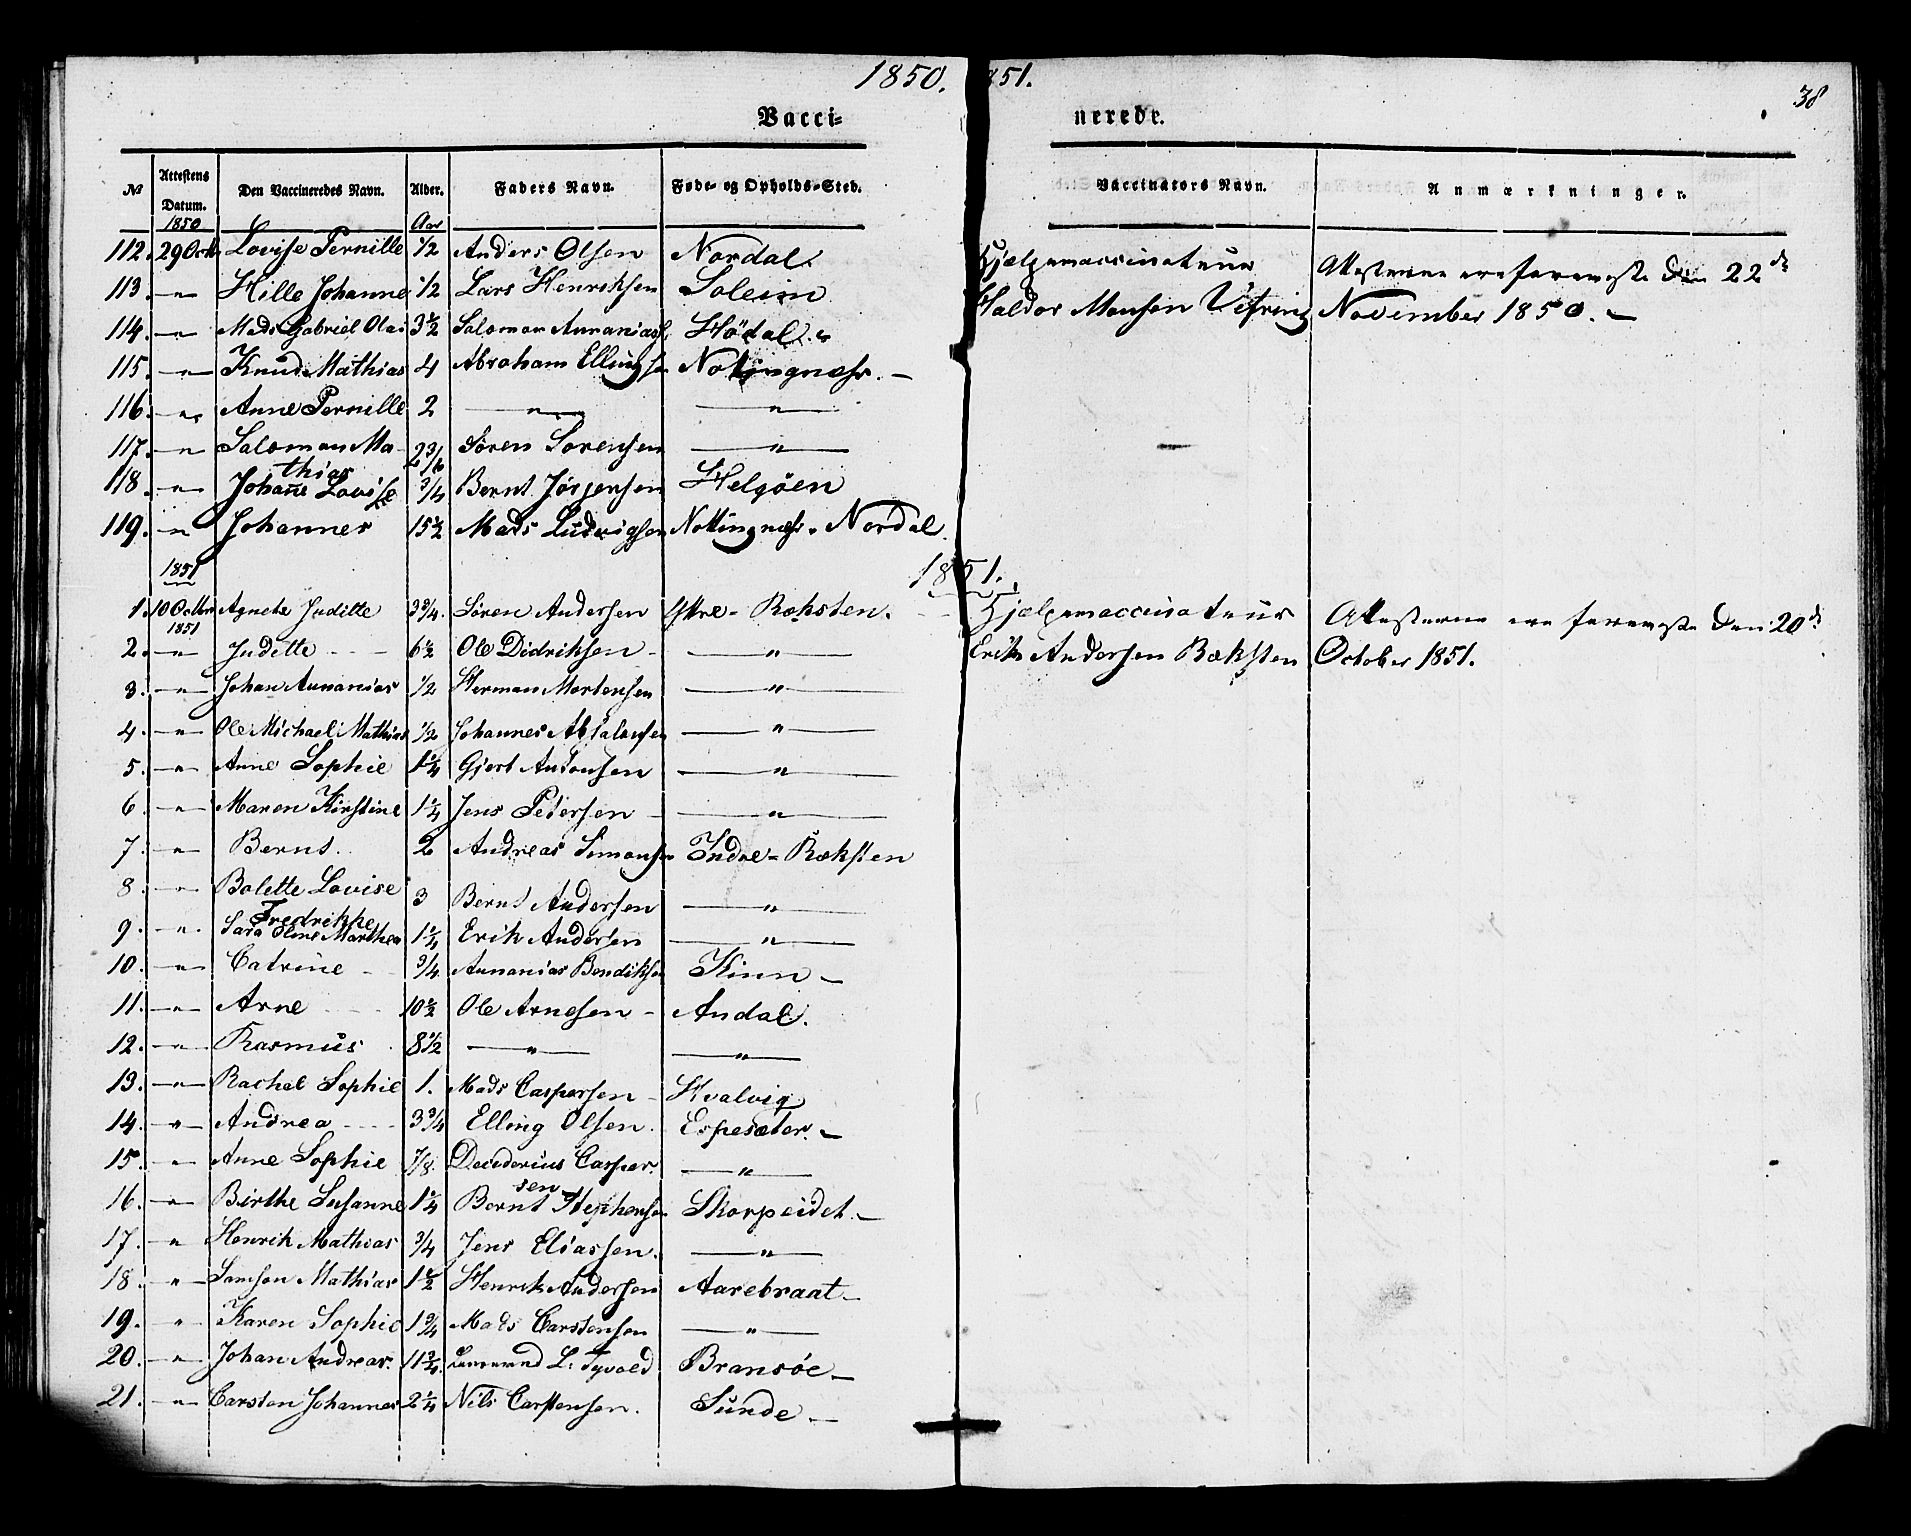 1850. 1851.
38
Vacci= nerede.
No Attestens Datum. Den Vaccineredes Navn. Alder. Faders Navn. Føde- og Opholds-Sted. Vaccinators Navn. Anmærkninger.
1850 Aar
112. 29 Octb Lovise Pernille 1/2 Anders Olsen Nordal. Hjælpevaccinateur Attesterne ere foreviste den 22de
113. —"— Hille Johanne 1/2 Lars Henriksen Soleim Haldor Monsen Vefring November 1850. —
114. —"— Mads Gabriel Olai 3 1/2 Salomon Annanias. Hødal. "
115. —"— Knud Mathias 4 Abraham Ellingsen Nottingnæss. —
116. —"— Anne Pernille 2 —"— —"—
117. —"— Salomon Ma- Søren Sørensen —"—
thias
118. —"— Johanne Lovise 3/4 Bernt Jørgensen Helgøen
119. —"— Johannes 15 1/2 Mads Ludvigsen Nottingnæss. Nordal.
1851
1851.
1. 10 Octbr Agnete Juditte 3 3/4. Søren Andersen Yttre- Ræksten. Hjælpevaccinateur Attesterne ere foreviste den 20de
1851
2. —"— Juditte 6 1/2 Ole Didriksen —"— Erik Andersen Ræksten October 1851.
3. —"— Johan Annanias 1/2 Herman Mortensen —"—
4. —"— Ole Michael Mathias 1/2 Johannes Absalonsen —"—
5. —"— Anne Sophie 1 1/4 Gjert Antonsen —"—
6. —"— Maren Kirstine 1 1/4 Jens Petersen —"—
7. —"— Bernt. 2 Andreas Simonsen Indre- Ræksten
8. —"— Bolette Lovise 3 Bernt Andersen —"—
Fredrikke
9. —"— Sara Oline Marthea 1 1/4 Erik Andersen —"—
10. —"— Catrine 3/4 Annanias Bendiksen Kinn —
11. —"— Arne 10 1/2 Ole Arnesen Andal.
12. —"— Rasmus 8 1/2 —"— —"—
13. —"— Rachel Sophie 1. Mads Caspersen Hvalvig
14. —"— Andrea 3 3/4 Elling Olsen. Espesæter. —
15. —"— Anne Sophie 7/8. Decederius Casper.
sen —"—
16. —"— Birthe Susanne 1 1/4 Bernt Stephensen Skorpeidet. —
17. —"— Henrik Mathias 3/4 Jens Eliassen. —"—
18. —"— Samson Mathias 1 1/2 Henrik Andersen Aarebraat —
19. —"— Karen Sophie 1 3/4 Mads Carstensen —"—
20. —"— Johan Andreas. 11 3/4. L. Tyvold Bransøe —
21. —"— Carsten Johannes 2 1/4 Nils Carstensen. Sunde —